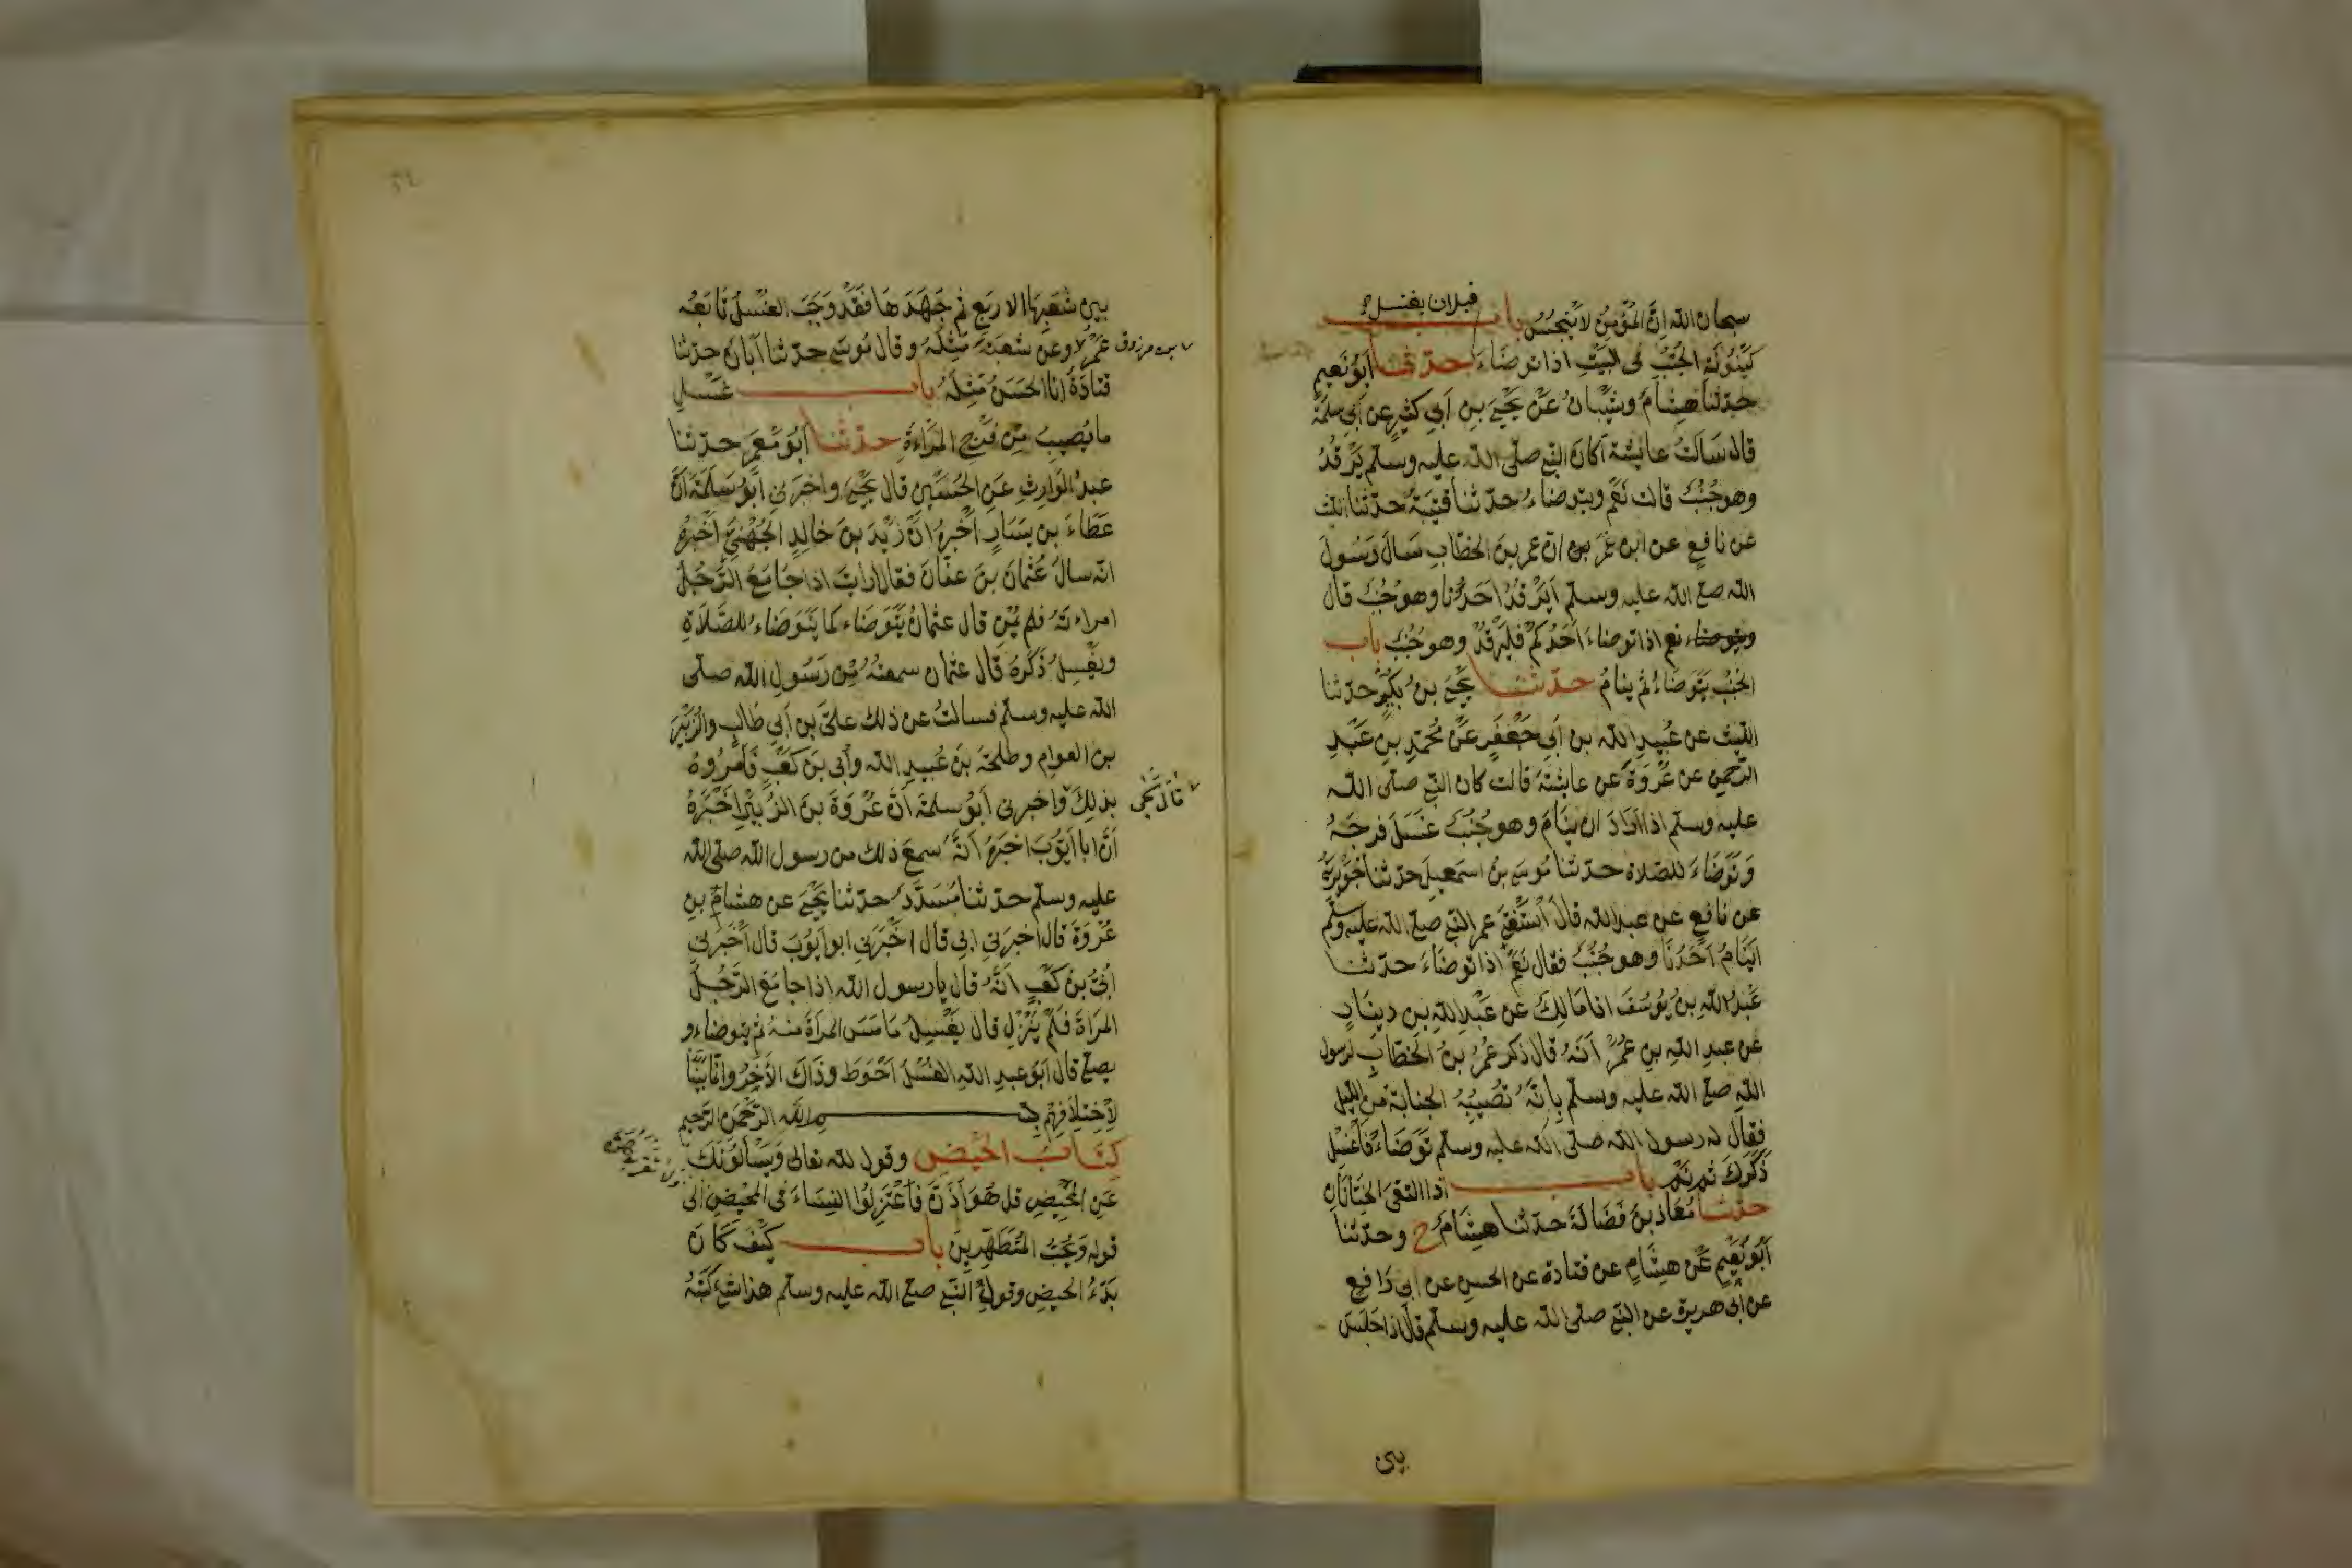 سبحان الله ان المؤمن لا ينجس باب قبل ان يغتسل
كينونة الجنب في البيت اذا توضاء حدثنا ابو نعيم
حدثنا هشام وشيبان عن يحيى بن ابي كثير عن ابي سلمة
قال سالت عايشة اكان النبي صلى الله عليه وسلم يرقد
وهو جنب قالت نعم ويتوضاء حدثنا قتيبة حدثنا الليث
عن نافع عن ابن عمر ان عمر بن الخطاب سال رسول
الله صلع الله عليه وسلم ايرقد احدنا وهو جنب قال
ويتوضاء نعم اذا توضاء احدكم فليرقد وهو جنب باب
الجنب يتوضاء ثم ينام حدثنا يحيى بن بكير حدثنا
الليث عن عبيد الله بن ابي جعفر عن محمد بن عبد
الرحمن عن عروة عن عايشة قالت كان النبي صلى الله
عليه وسلم اذا اراد ان ينام وهو جنب غسل فرجه
وتوضاء للصلاة حدثنا موسى بن اسمعيل حدثنا جويرية
عن نافع عن عبد الله قال استفتى عمر النبي صلع الله عليه وسلم
اينام احدنا وهو جنب فقال نعم اذا توضاء حدثنا
عبد الله بن يوسف انا مالك عن عبد الله بن دينار
عن عبد الله بن عمر انه قال ذكر عمر بن الخطاب لرسول
الله صلع الله عليه وسلم بانه تصيبه الجنابة من الليل
فقال له رسول الله صلى الله عليه وسلم توضاء فاغسل
ذكرك ثم نم باب اذا التقى الختانان
حدثنا معاذ بن فضالة حدثنا هشام ح وحدثنا
ابو نعيم عن هشام عن قتادة عن الحسن عن ابي رافع
عن ابي هريرة عن النبي صلى الله عليه وسلم قال اذا جلس
بين
بين شعبها الاربع ثم جهدها فقد وجب الغسل تابعه
عمرو وعن شعبة مثله وقال موسى حدثنا ابان حدثنا
بن مرزوق
قتادة انا الحسن مثله باب غسل
ما يصيب من فرج المراءة حدثنا ابو معمر حدثنا
عبد الوارث عن الحسين قال يحيى واخبرني ابو سلمة ان
عطاء بن يسار اخبره ان زيد بن خالد الجهني اخبره
انه سال عثمان بن عفان فقال ارايت اذا جامع الرجل
امراءته فلم يمن قال عثمان يتوضاء كما يتوضاء للصلاة
ويغسل ذكره قال عثمان سمعته من رسول الله صلى
الله عليه وسلم فسالت عن ذلك على بن ابي طالب والزبير
بن العوام وطلحة بن عبيد الله وابي بن كعب فامروه
بذلك واخبرني ابو سلمة ان عروة بن الزبير اخبره
قال يحيى
ان ابا ايوب اخبره انه سمع ذلك من رسول الله صلى الله
عليه وسلم حدثنا مسدد حدثنا يحيى عن هشام بن
عروة قال اخبرني ابي قال اخبرني ابو ايوب قال اخبرني
ابي بن كعب انه قال يا رسول الله اذا جامع الرجل
المراة فلم ينزل قال يغسل ما مس المراة منه ثم يتوضاء و
يصلي قال ابو عبد الله الغسل احوط وذاك الاخر وانا بينا
لاختلافهم بسم الله الرحمن الرحيم
كتاب الحيض وقول الله تعالى ويسالونك
عن المحيض قل هو اذى فاعتزلوا النساء في المحيض الى
قوله ويحب المتطهرين باب كيف كان
بدء الحيض وقول النبي صلع الله عليه وسلم هذا شئ كتبه